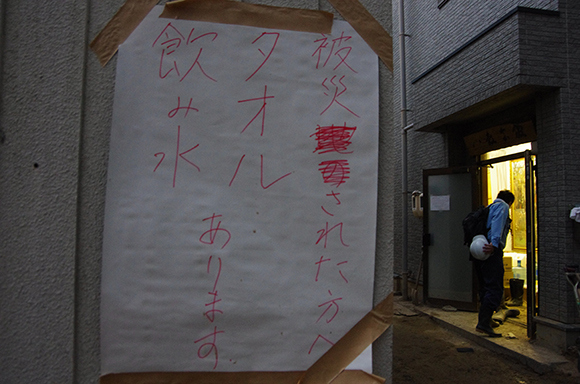 被災された方へ
タオル
飲み水
あります